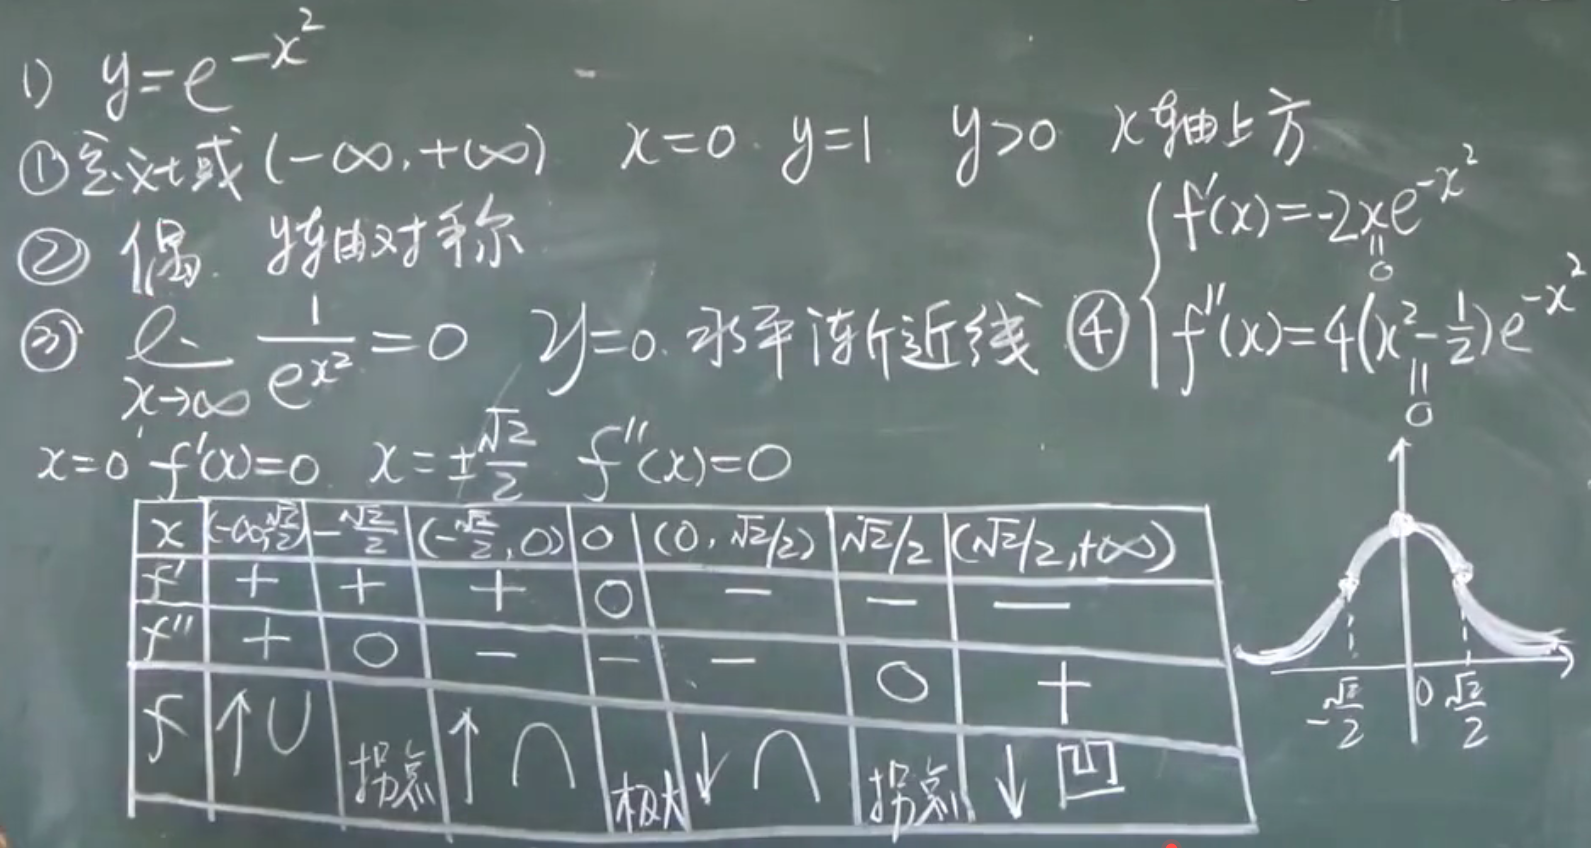 1) y=e^{-x^2}
①定义域(-∞,+∞) x=0. y=1 y>0 x轴上方
②偶. y轴对称
③ lim_{x→∞} 1/e^{x^2}=0 y=0.水平渐近线
④ { f'(x)=-2xe^{-x^2}
=0
f''(x)=4(x^2-1/2)e^{-x^2}
=0
x=0 f'(x)=0 x=±√2/2 f''(x)=0
x (-∞,-√2/2) -√2/2 (-√2/2,0) 0 (0,√2/2) √2/2 (√2/2,+∞)
f' + + + 0 - - -
f'' + 0 - - - 0 +
f ↑∪ 拐点 ↑∩ 极大 ↓∩ 拐点 ↓凹
-√2/2 0 √2/2